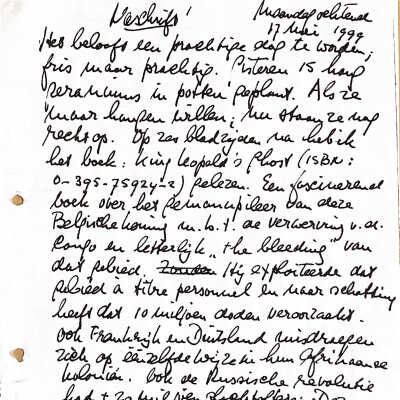 Naschrift!
Maandagochtend
17 Mei 1999
Het belooft een prachtige dag te worden;
fris maar prachtig. Gisteren 15 hang
geraniums in potten geplant. Als ze
maar hangen willen; nu staan ze nog
rechtop. Op zes bladzijden na heb ik
het boek: King Leopold's Ghost (ISBN:
0-395-75924-2) gelezen. Een fascinerend
boek over het gemanipuleer van deze
Belgische koning m.b.t. de verwerving v.d.
Congo en letterlijk „the bleeding" van
dat gebied. Zouden Hij exploiteerde dat
gebied à titre personnel en naar schatting
heeft dat 10 miljoen doden veroorzaakt.
Ook Frankrijk en Duitsland misdroegen
zich op eenzelfde wijze in hun Afrikaanse
koloniën. Ook de Russische revolutie
had ± 20 miljoen